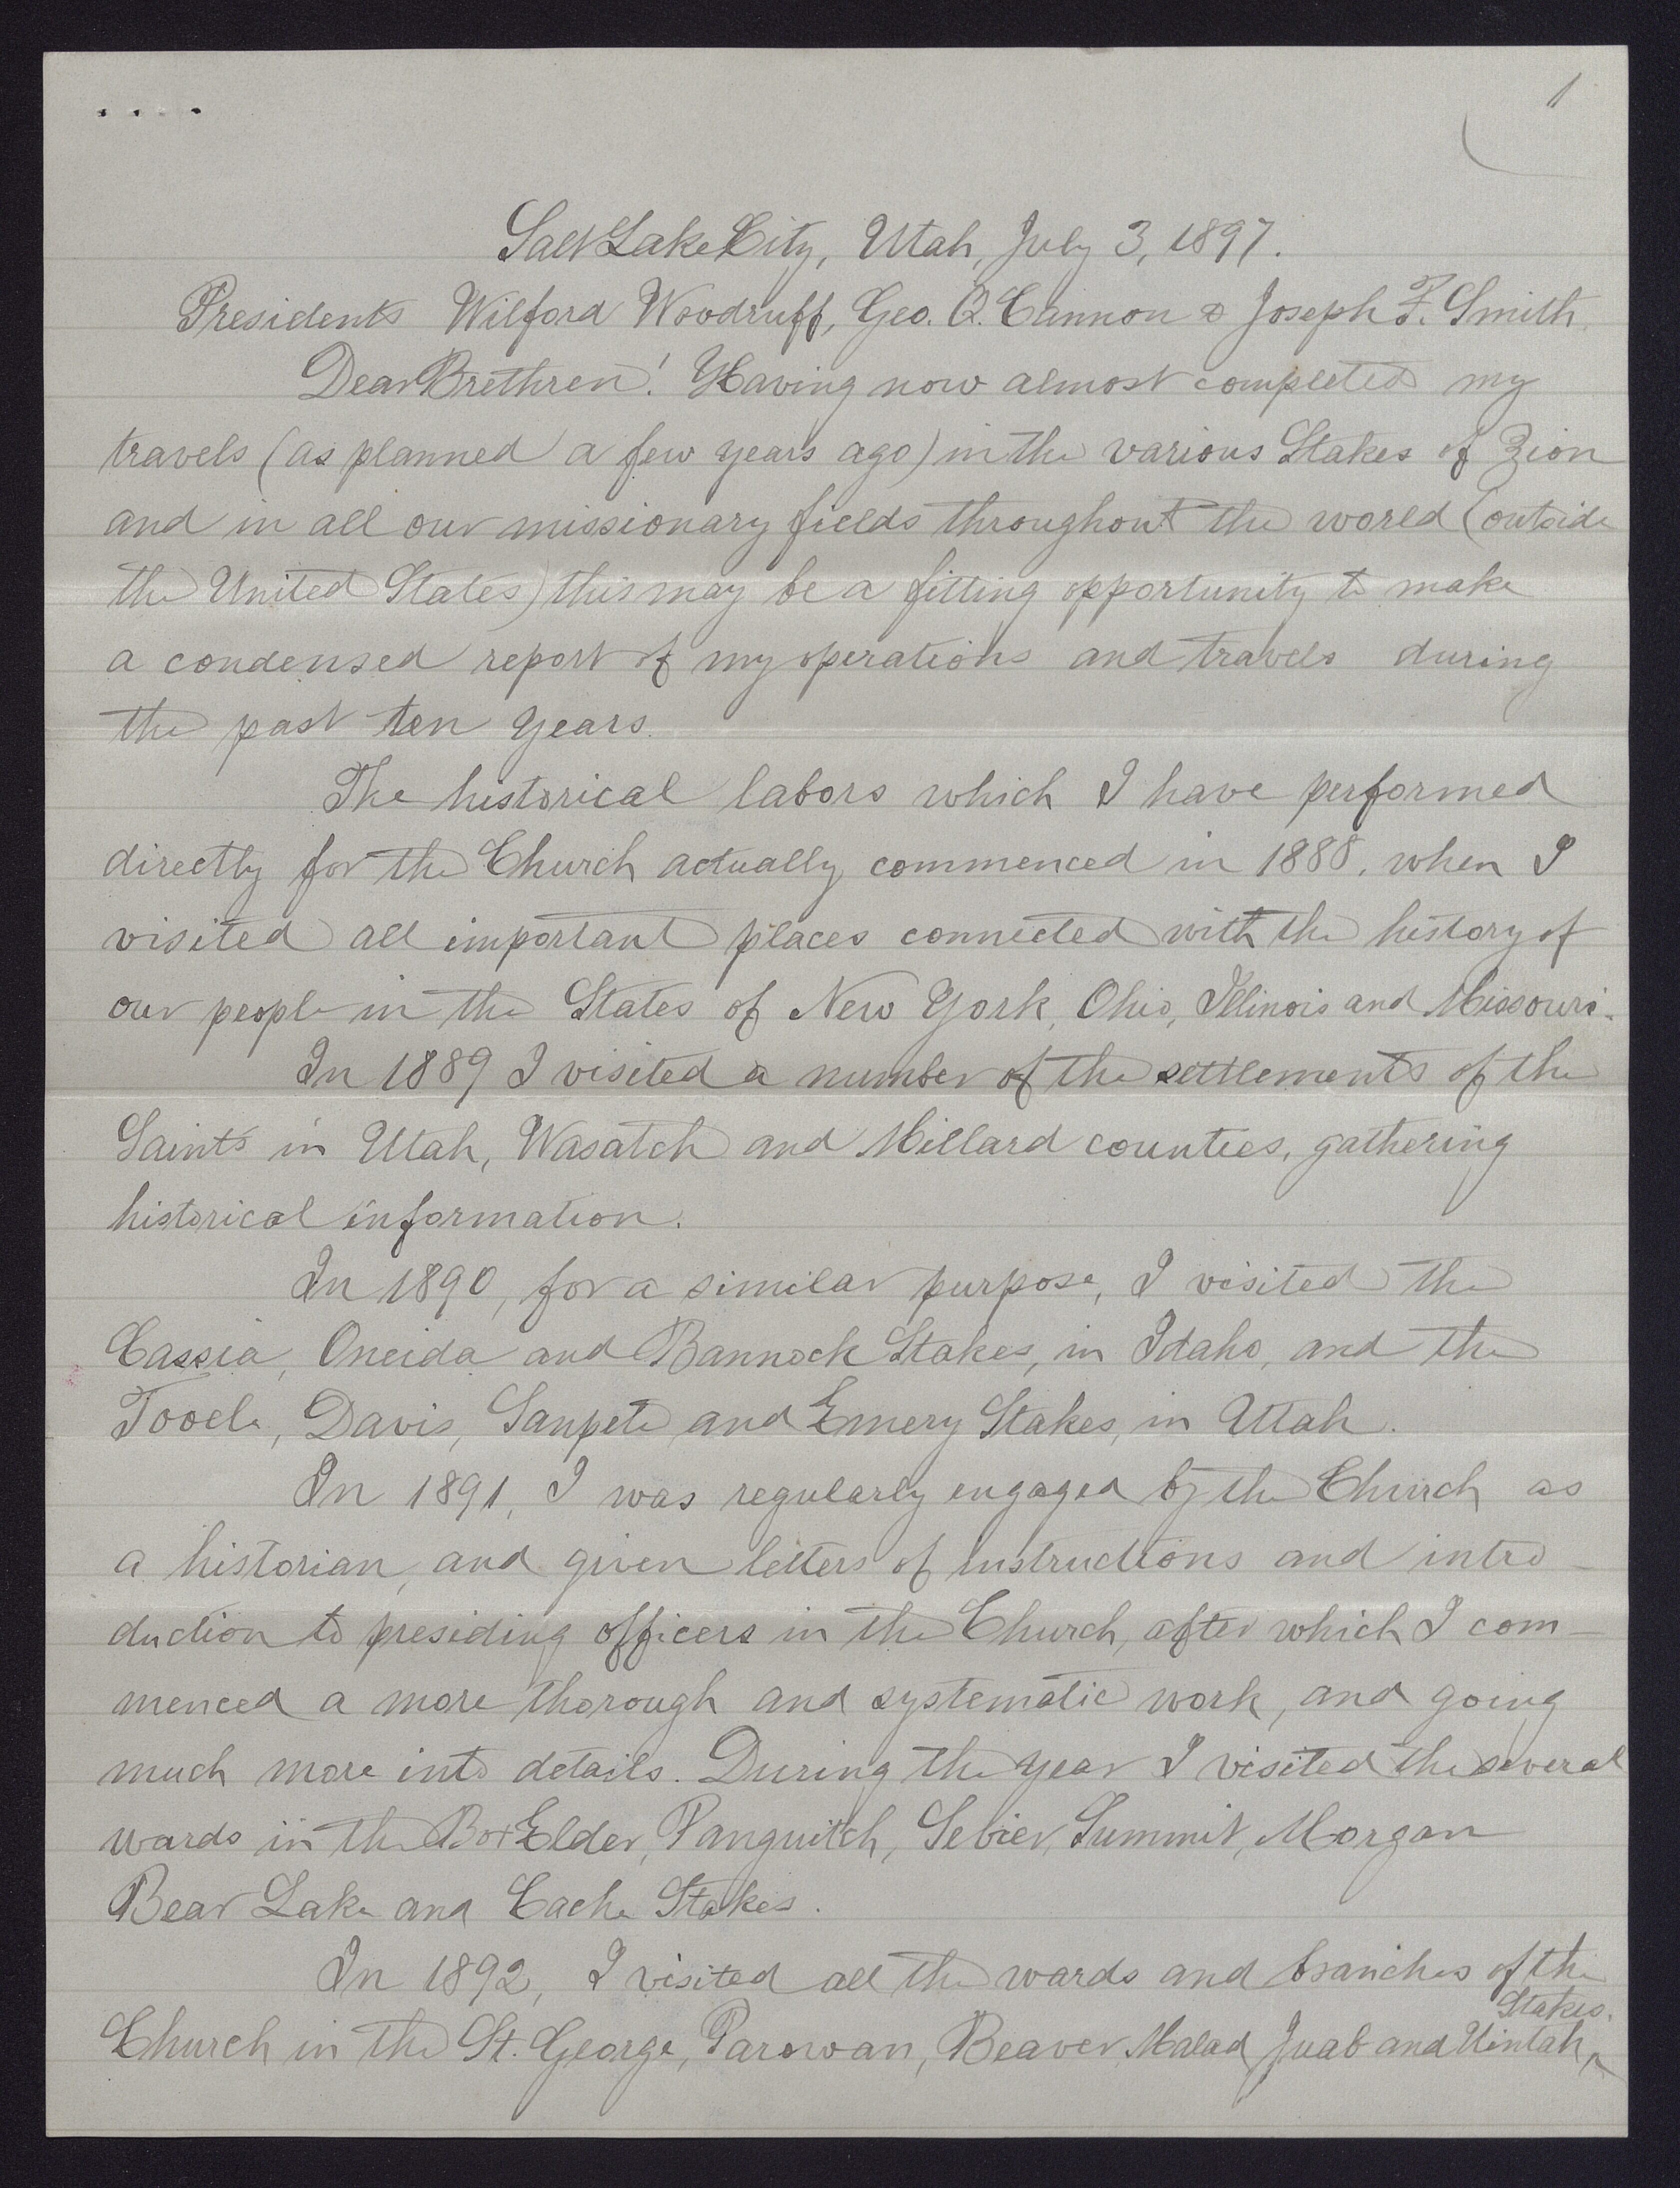 1
Salt Lake City, Utah, July 3, 1897.
Presidents Wilford Woodruff, Geo. Q. Cannon & Joseph F. Smith.
Dear Brethren! Having now almost completed my
travels (as planned a few years ago) in the various Stakes of Zion
and in all our missionary fields throughout the world (outside
the United States) this may be a fitting opportunity to make
a condensed report of my operations and travels during
the past ten years.
The historical labors which I have performed
directly for the Church actually commenced in 1888, when I
visited all important places connected with the history of
our people in the States of New York, Ohio, Illinois and Missouri.
In 1889 I visited a number of the settlements of the
Saints in Utah, Wasatch and Millard counties, gathering
historical information.
In 1890, for a similar purpose, I visited the
Cassia, Oneida and Bannock Stakes, in Idaho, and the
Tooele, Davis, Sanpete and Emery Stakes, in Utah.
In 1891, I was regularly engaged by the Church as
a historian, and given letters of instructions and intro-
duction to presiding officers in the Church, after which I com-
menced a more thorough and systematic work, and going
much more into details. During the year I visited the several
wards in the Box Elder, Panguitch, Sevier, Summit, Morgan
Bear Lake and Cache Stakes.
In 1892, I visited all the wards and branches of the
Church in the St. George, Parowan, Beaver, Malad, Juab and Uintah ^ Stakes.